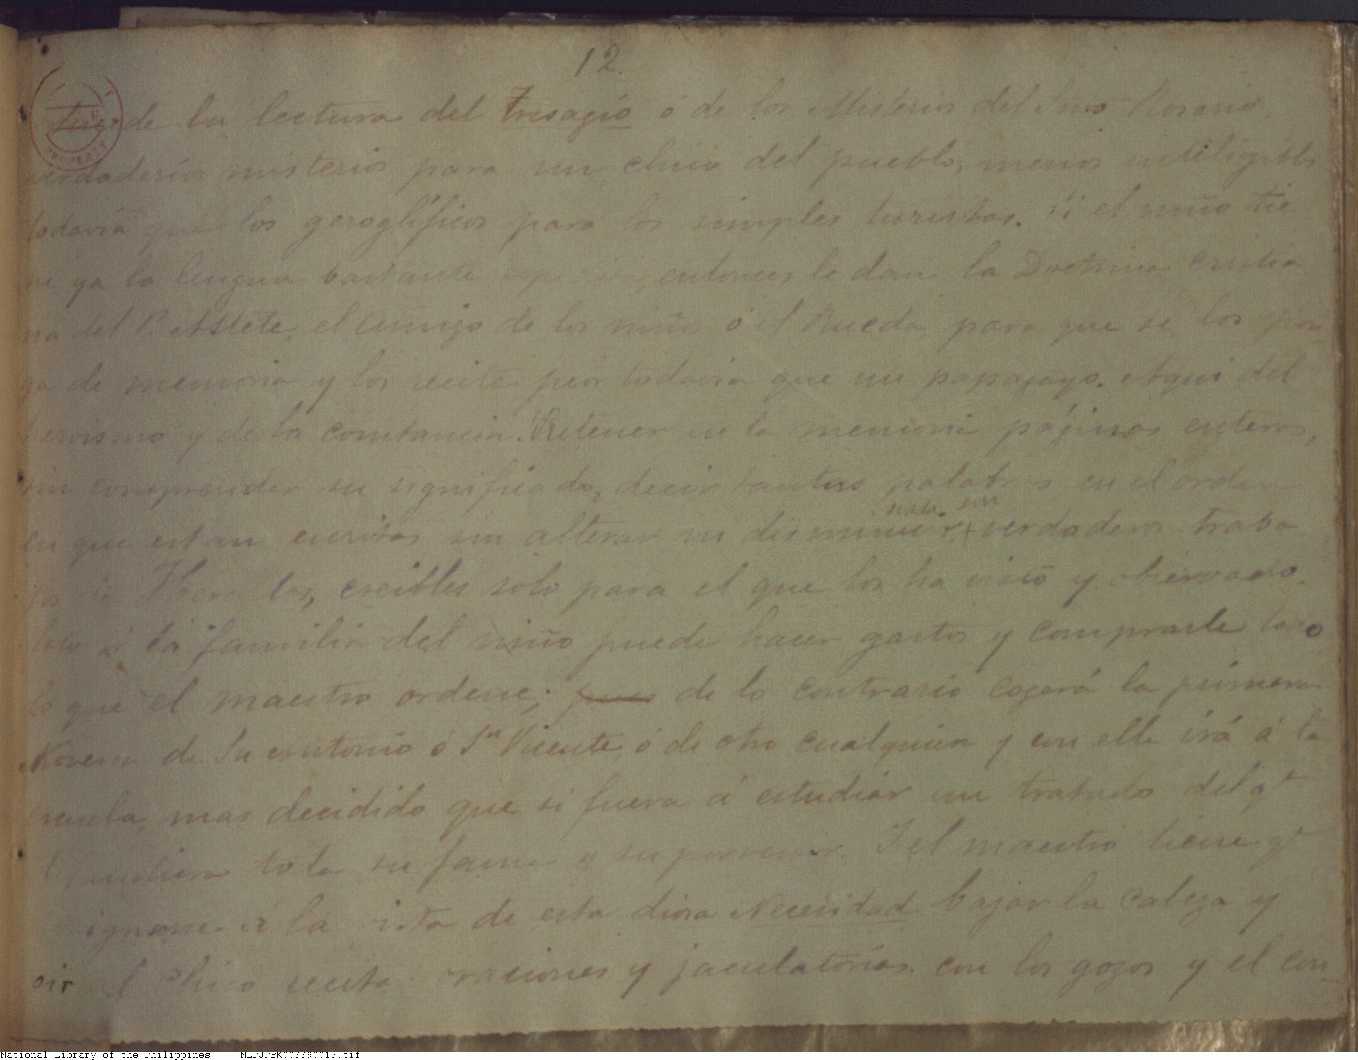 12
de la lectura del Trisagio ó de los Misterios del Smo Rosario,
verdaderos misterios para un chico del pueblo, menos inteligibles
todavia que los geroglíficos para los simples turistas. Si el niño tie
ne ya la lengua bastante entonces le dan la Doctrina cristia
na del P. Astete, el amigo de los niños ó el Rueda para que se los pon
ga de memoria y los recite peor todavia que un papagayo. Aqui del
heroismo y de la constancia. Retener en la memoria páginas enteras,
sin comprender su significado, decir tantas palabras en el orden
en que estan escritas sin alterar ni disminuir nada son verdaderos traba
jos de Hercules, creibles solo para el que los ha visto y observado.
Esto si la familia del niño puede hacer gastos y comprarle todo
lo que el maestro ordene; de lo contrario cogerá la primera
Novena de Sn Antonio ó Sn Vicente, ó de otro cualquiera y con ella irá á la
escuela, mas decidido que si fuera á estudiar un tratado del qe
toda su fama y su porvenir. I el maestro tiene qe
á la vista de esta diosa Necesidad bajar la cabeza y
oir al chico recitar oraciones y jaculatorias con los gozos y el con-
National Library of the Philippines